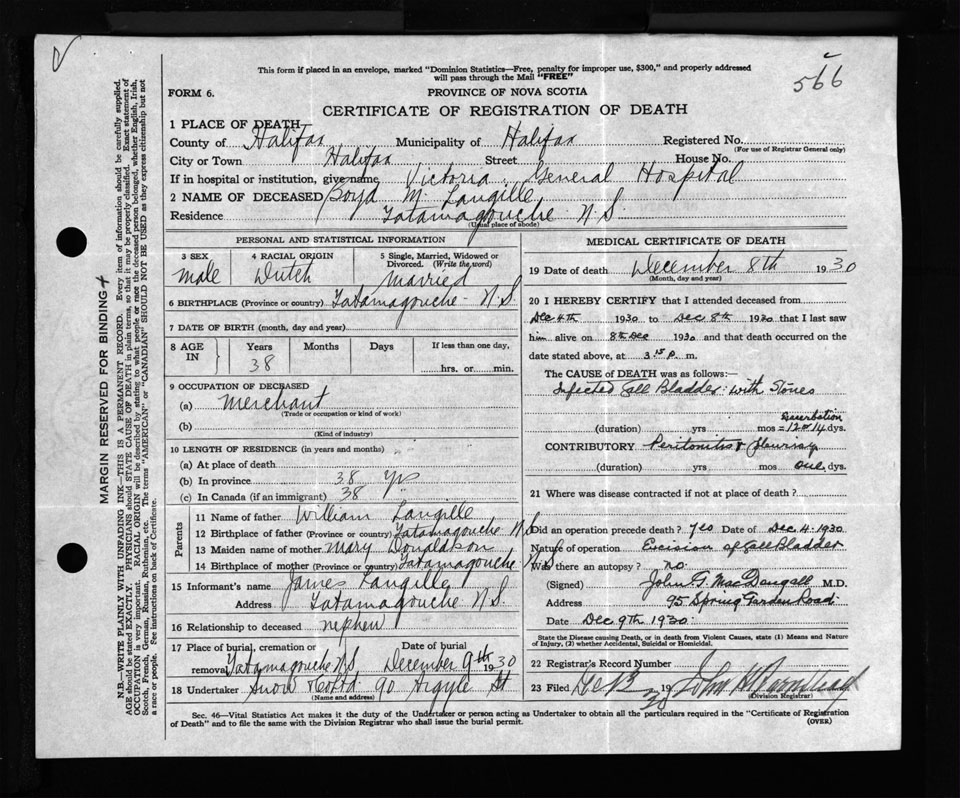 This form if placed in an envelope, marked "Dominion Statistics—Free, penalty for improper use, $300," and properly addressed
will pass through the Mail "FREE"
566
FORM 6.
PROVINCE OF NOVA SCOTIA
CERTIFICATE OF REGISTRATION OF DEATH
1 PLACE OF DEATH—
County of Halifax Municipality of Halifax Registered No.
(For use of Registrar General only)
City or Town Halifax Street House No.
If in hospital or institution, give name Victoria General Hospital
2 NAME OF DECEASED Boyd M. Langille
Residence Tatamagouche N.S.
(Usual place of abode)
PERSONAL AND STATISTICAL INFORMATION
3 SEX 4 RACIAL ORIGIN 5 Single, Married, Widowed or
Divorced. (Write the word)
Male Dutch Married
6 BIRTHPLACE (Province or country) Tatamagouche N.S.
7 DATE OF BIRTH (month, day and year)
8 AGE IN Years Months Days If less than one day,
38 hrs. or min.
9 OCCUPATION OF DECEASED
(a) Merchant
(Trade or occupation or kind of work)
(b)
(Kind of industry)
10 LENGTH OF RESIDENCE (in years and months)
(a) At place of death
(b) In province 38 yrs
(c) In Canada (if an immigrant) 38
Parents
11 Name of father William Langille
12 Birthplace of father (Province or country) Tatamagouche N S
13 Maiden name of mother Mary Donaldson
14 Birthplace of mother (Province or country) Tatamagouche N S
15 Informant's name James Langille
Address Tatamagouche N S.
16 Relationship to deceased nephew
17 Place of burial, cremation or Date of burial
removal Tatamagouche N S December 9th 1930
18 Undertaker Snow & Co Ltd 90 Argyle St
(Name and address)
MEDICAL CERTIFICATE OF DEATH
19 Date of death December 8th 1930
(Month, day and year)
20 I HEREBY CERTIFY that I attended deceased from
Dec 4th 1930 to Dec 8th 1930 that I last saw
him alive on 8th Dec 1930 and that death occurred on
date stated above, at 3.15 p. m.
The CAUSE of DEATH was as follows:—
Infected Gall Bladder: with Stones
(duration) yrs mos 12 or 14 dys.
CONTRIBUTORY Peritonitis & Pleurisy
(duration) yrs mos one dys.
21 Where was disease contracted if not at place of death?
Did an operation precede death? yes Date of Dec 4. 1930.
Nature of operation Excision of Gall Bladder
Was there an autopsy? no.
(Signed) John G. MacDougall M.D.
Address 95 Spring Garden Road
Date Dec 9th 1930.
State the Disease causing Death, or in death from Violent Causes, state (1) Means and Nature
of Injury, (2) whether Accidental, Suicidal or Homicidal.
22 Registrar's Record Number
23 Filed Dec 19
(Division Registrar)
Sec. 46—Vital Statistics Act makes it the duty of the Undertaker or person acting as Undertaker to obtain all the particulars required in the "Certificate of Registration
of Death" and to file the same with the Division Registrar who shall issue the burial permit.
(OVER)
MARGIN RESERVED FOR BINDING
N.B.—WRITE PLAINLY WITH UNFADING INK—THIS IS A PERMANENT RECORD. Every item of information should be carefully supplied.
AGE should be stated EXACTLY. PHYSICIANS should STATE CAUSE OF DEATH in plain terms, so that it may be properly classified. Exact statement of
OCCUPATION is very important. RACIAL ORIGIN will be described by stating to what people or race the deceased person belonged, whether English, Irish,
Scotch, French, German, Russian, Ruthenian, etc. The terms "AMERICAN" or "CANADIAN" SHOULD NOT BE USED as they express citizenship but not
a race or people. See instructions on back of Certificate.